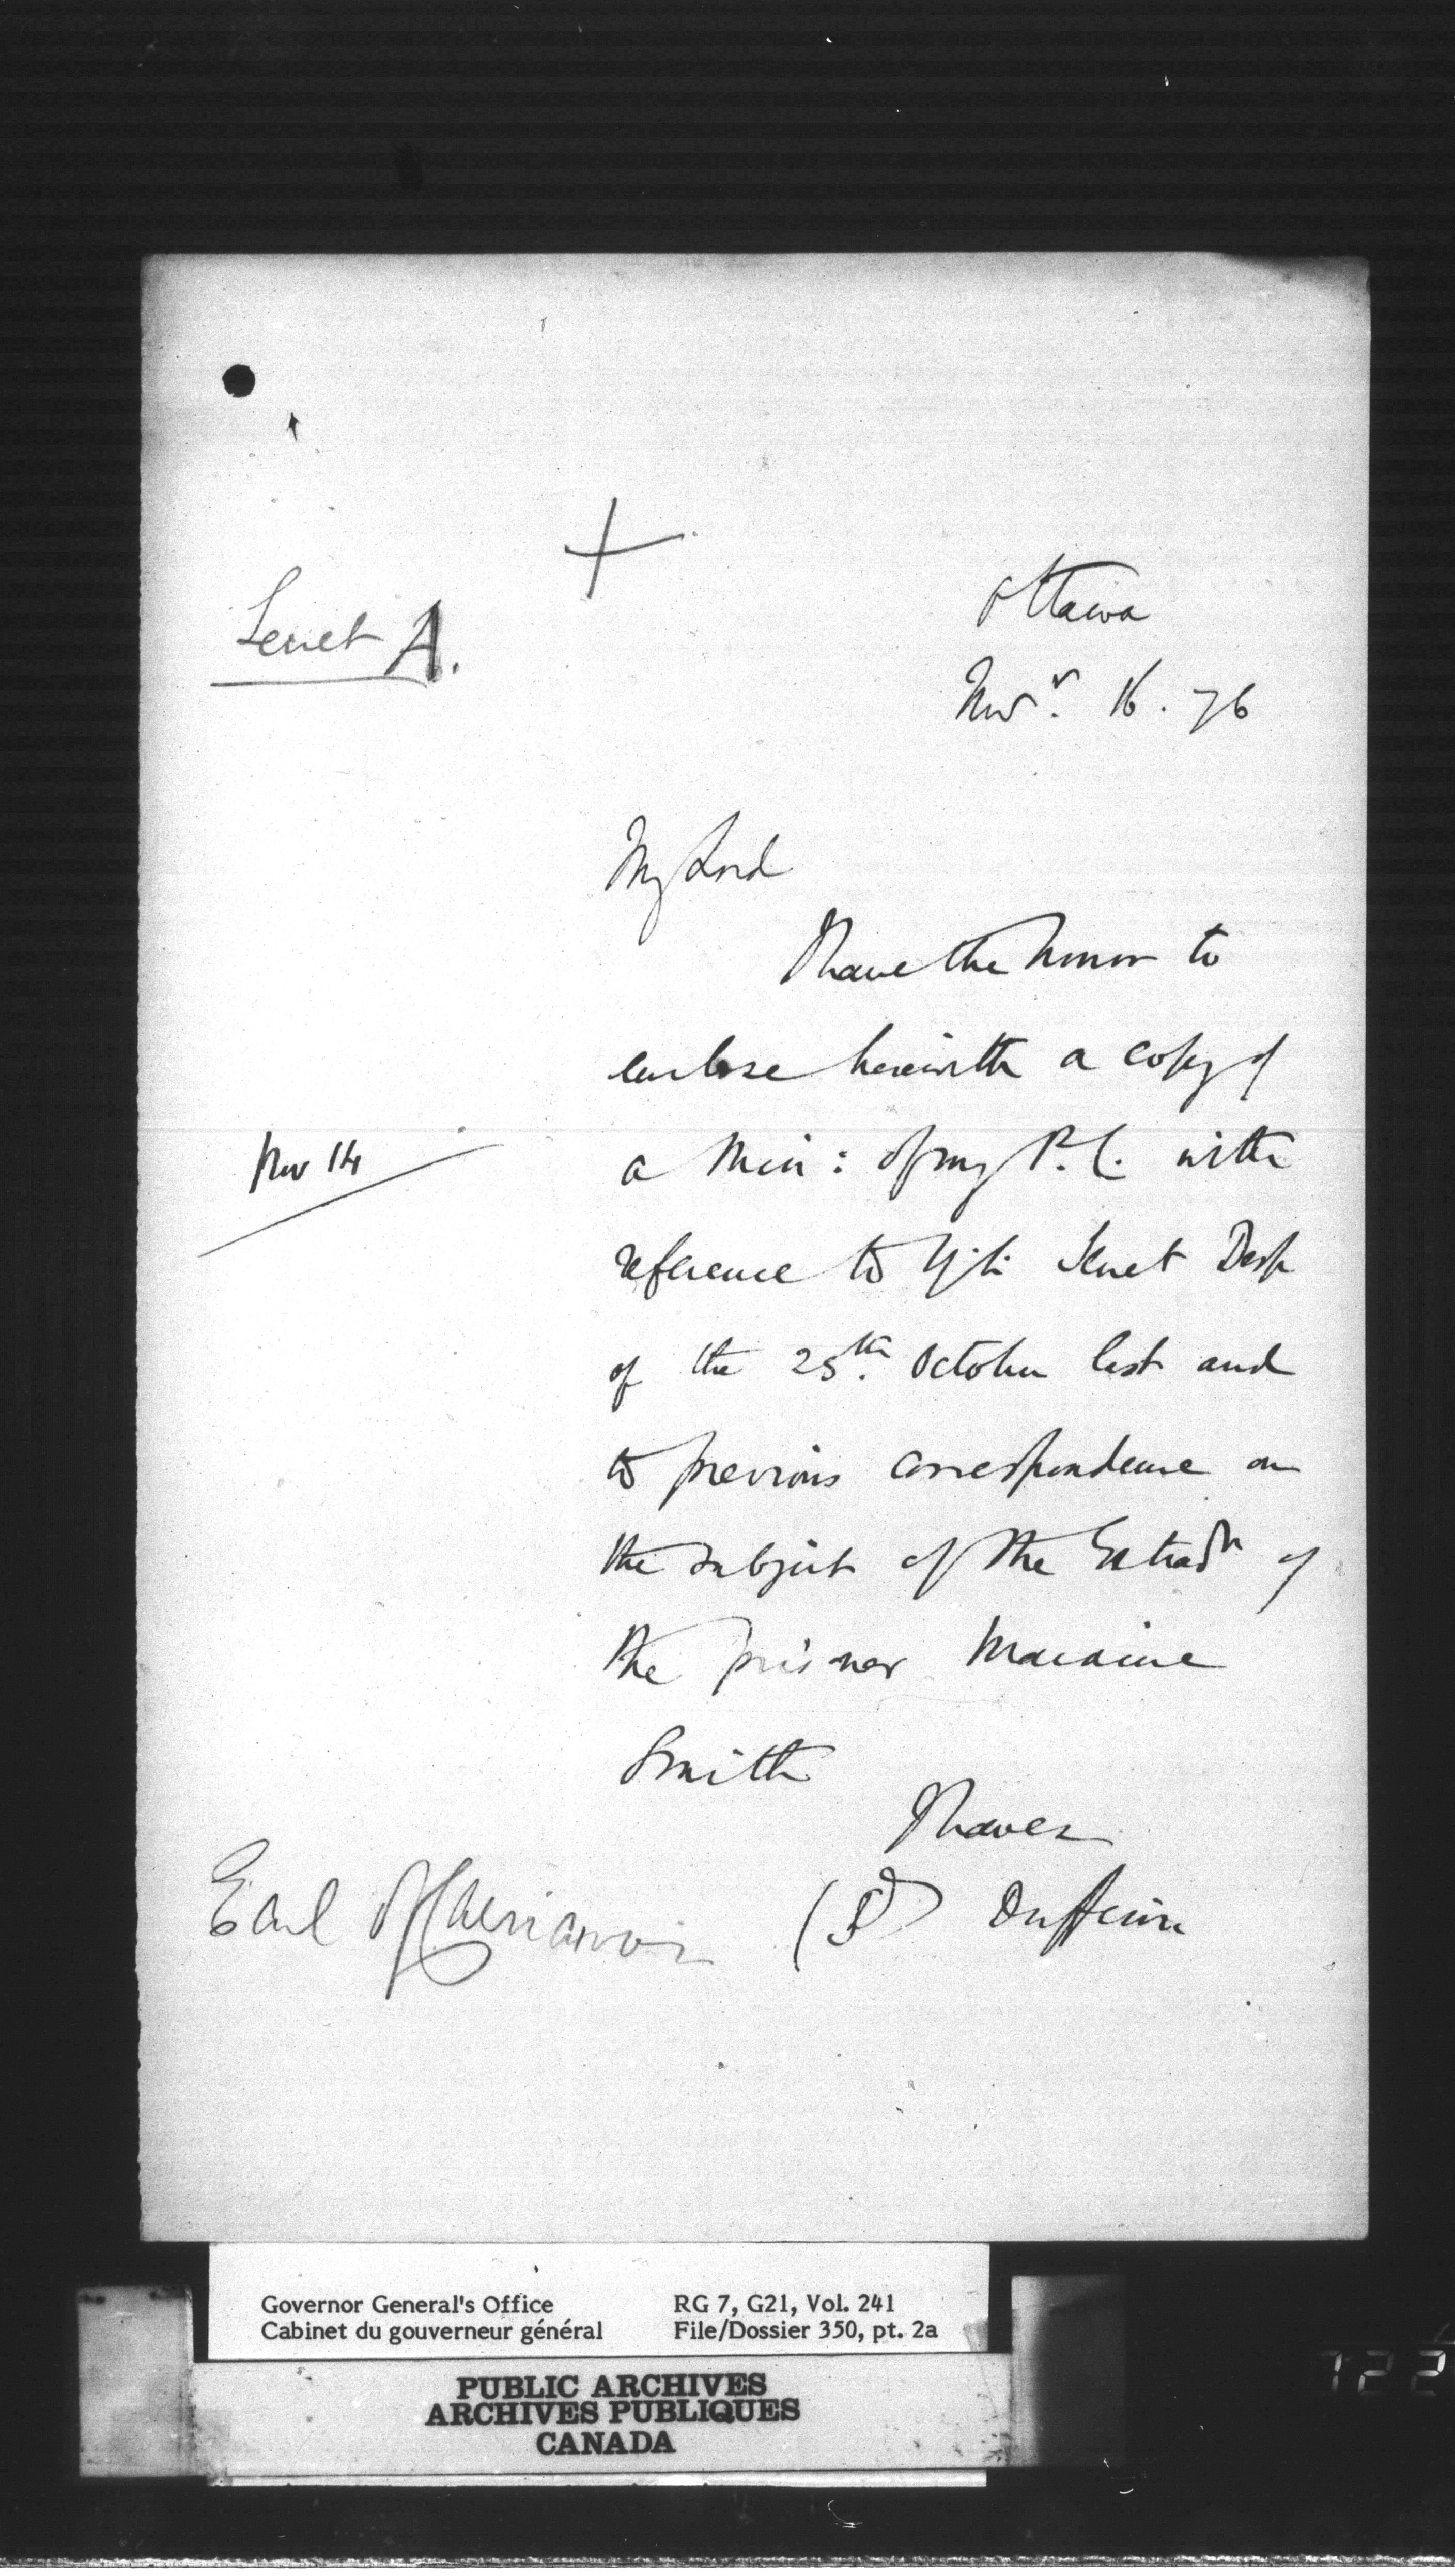 Secret A.
Ottawa
Novr. 16. 76
My Lord
I have the honor to
enclose herewith a copy of
a Min: of my P.C. with
Nov 14
reference to Y.L. Secret Desp
of the 25th. October last and
to previous correspondence on
the subject of the Extradn of
the prisoner
Smith
I have &
(Sd) Dufferin
Earl of Carnarvon
Governor General's Office
Cabinet du gouverneur général
RG 7, G21, Vol. 241
File/Dossier 350, pt. 2a
PUBLIC ARCHIVES
ARCHIVES PUBLIQUES
CANADA
122